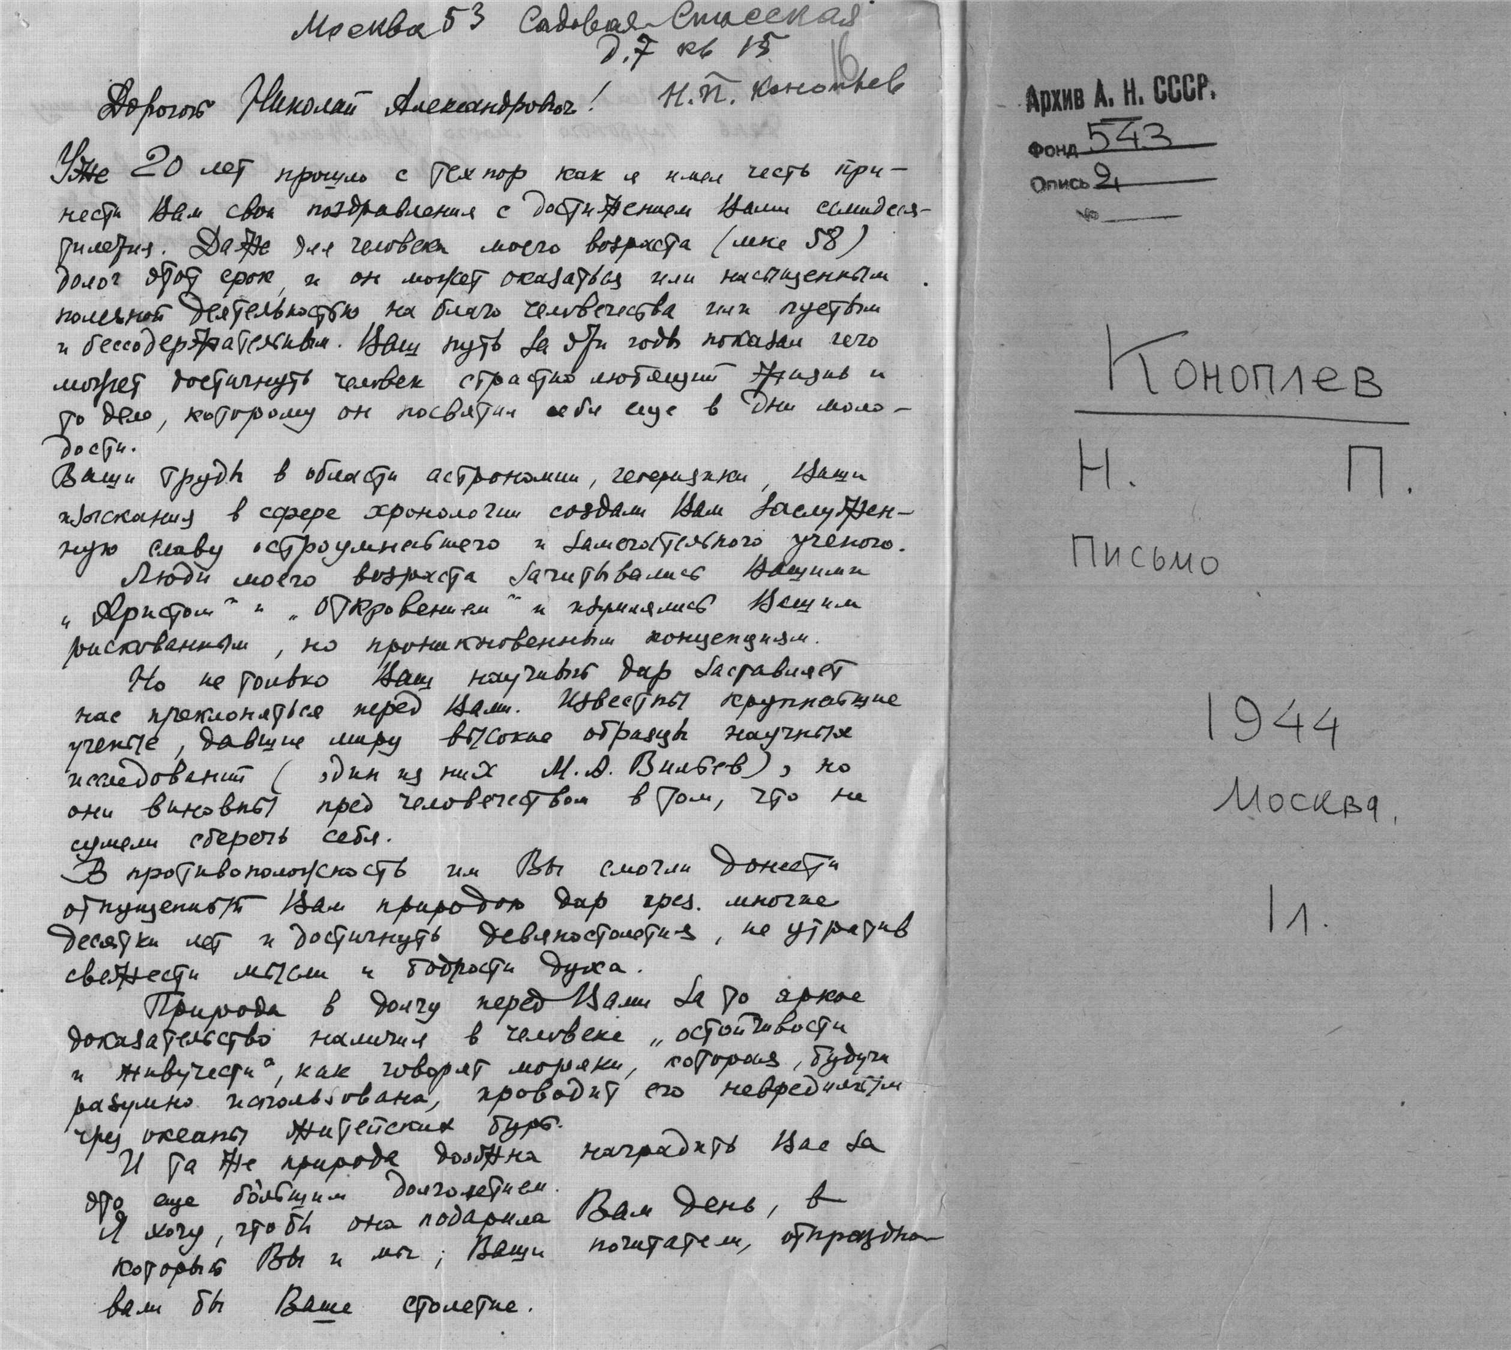 Москва 53 Садовая-Спасская
д. 7 кв 15
16
Н. П. Коноплев
Дорогой Николай Александрович!
Уже 20 лет прошло с тех пор как я имел честь при-
нести Вам свои поздравления с достижением Вами семидеся-
тилетия. Даже для человека моего возраста (мне 58)
долог этот срок, и он может оказаться или насыщенным
полезной деятельностью на благо человечества или пустым
и бессодержательным. Ваш путь за эти годы показал чего
может достигнуть человек страстно любящий жизнь и
то дело, которому он посвятил себя еще в дни моло-
дости.
Ваши труды в области астрономии, геофизики, Ваши
изыскания в сфере хронологии создали Вам заслужен-
ную славу остроумнейшего и замечательного ученого.
Люди моего возраста зачитывались Вашими
„Христом" и „Откровением" и изумлялись Вашим
рискованным, но проникновенным концепциям.
Но не только Ваш научный дар заставляет
нас преклоняться перед Вами. Известны крупнейшие
ученые, давшие миру высокие образцы научных
исследований (один из них М. А. Вильев), но
они виновны пред человечеством в том, что не
сумели сберечь себя.
В противоположность им Вы смогли донести
отпущенный Вам природою дар чрез многие
десятки лет и достигнуть девяностолетия, не утратив
свежести мысли и бодрости духа.
Природа в долгу перед Вами за то яркое
доказательство наличия в человеке „остойчивости
и живучести", как говорят моряки, которая, будучи
разумно использована, проводит его невредимым
чрез океаны житейских бурь.
И та же природа должна наградить Вас за
это еще бо́льшим долголетием.
Я хочу, что бы она подарила Вам день, в
который Вы и мы, Ваши почитатели, отпраздно-
вали бы Ваше столетие.
Архив А. Н. СССР.
Фонд 543
Опись 2
№
Коноплев
Н. П.
Письмо
1944
Москва.
1 л.